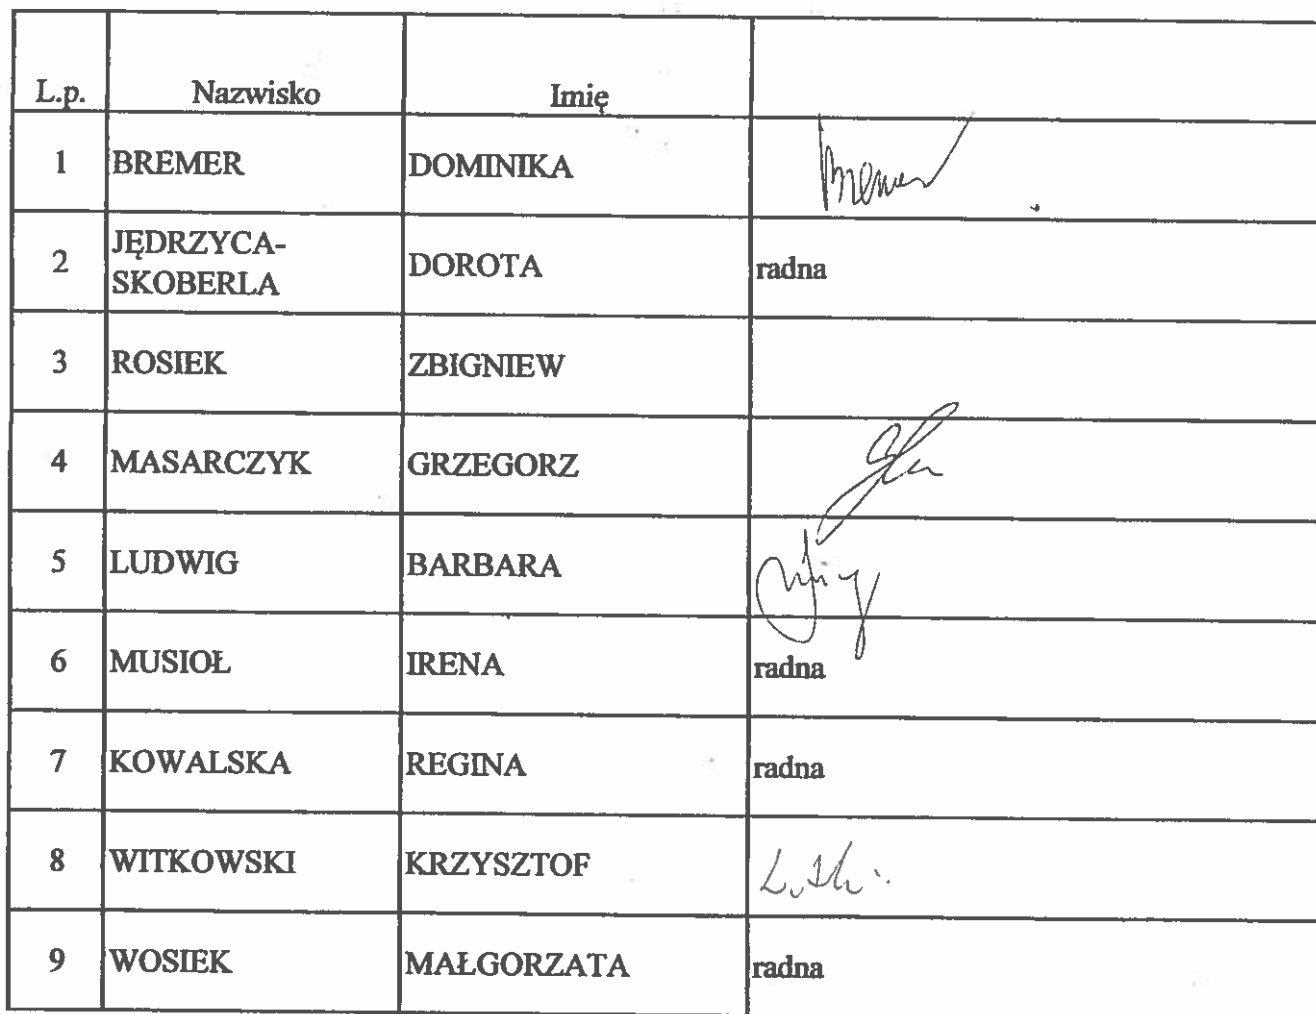 L.p. Nazwisko Imię
1 BREMER DOMINIKA Bremer
2 JĘDRZYCA-
SKOBERLA DOROTA radna
3 ROSIEK ZBIGNIEW
4 MASARCZYK GRZEGORZ
5 LUDWIG BARBARA
6 MUSIOŁ IRENA radna
7 KOWALSKA REGINA radna
8 WITKOWSKI KRZYSZTOF
9 WOSIEK MAŁGORZATA radna